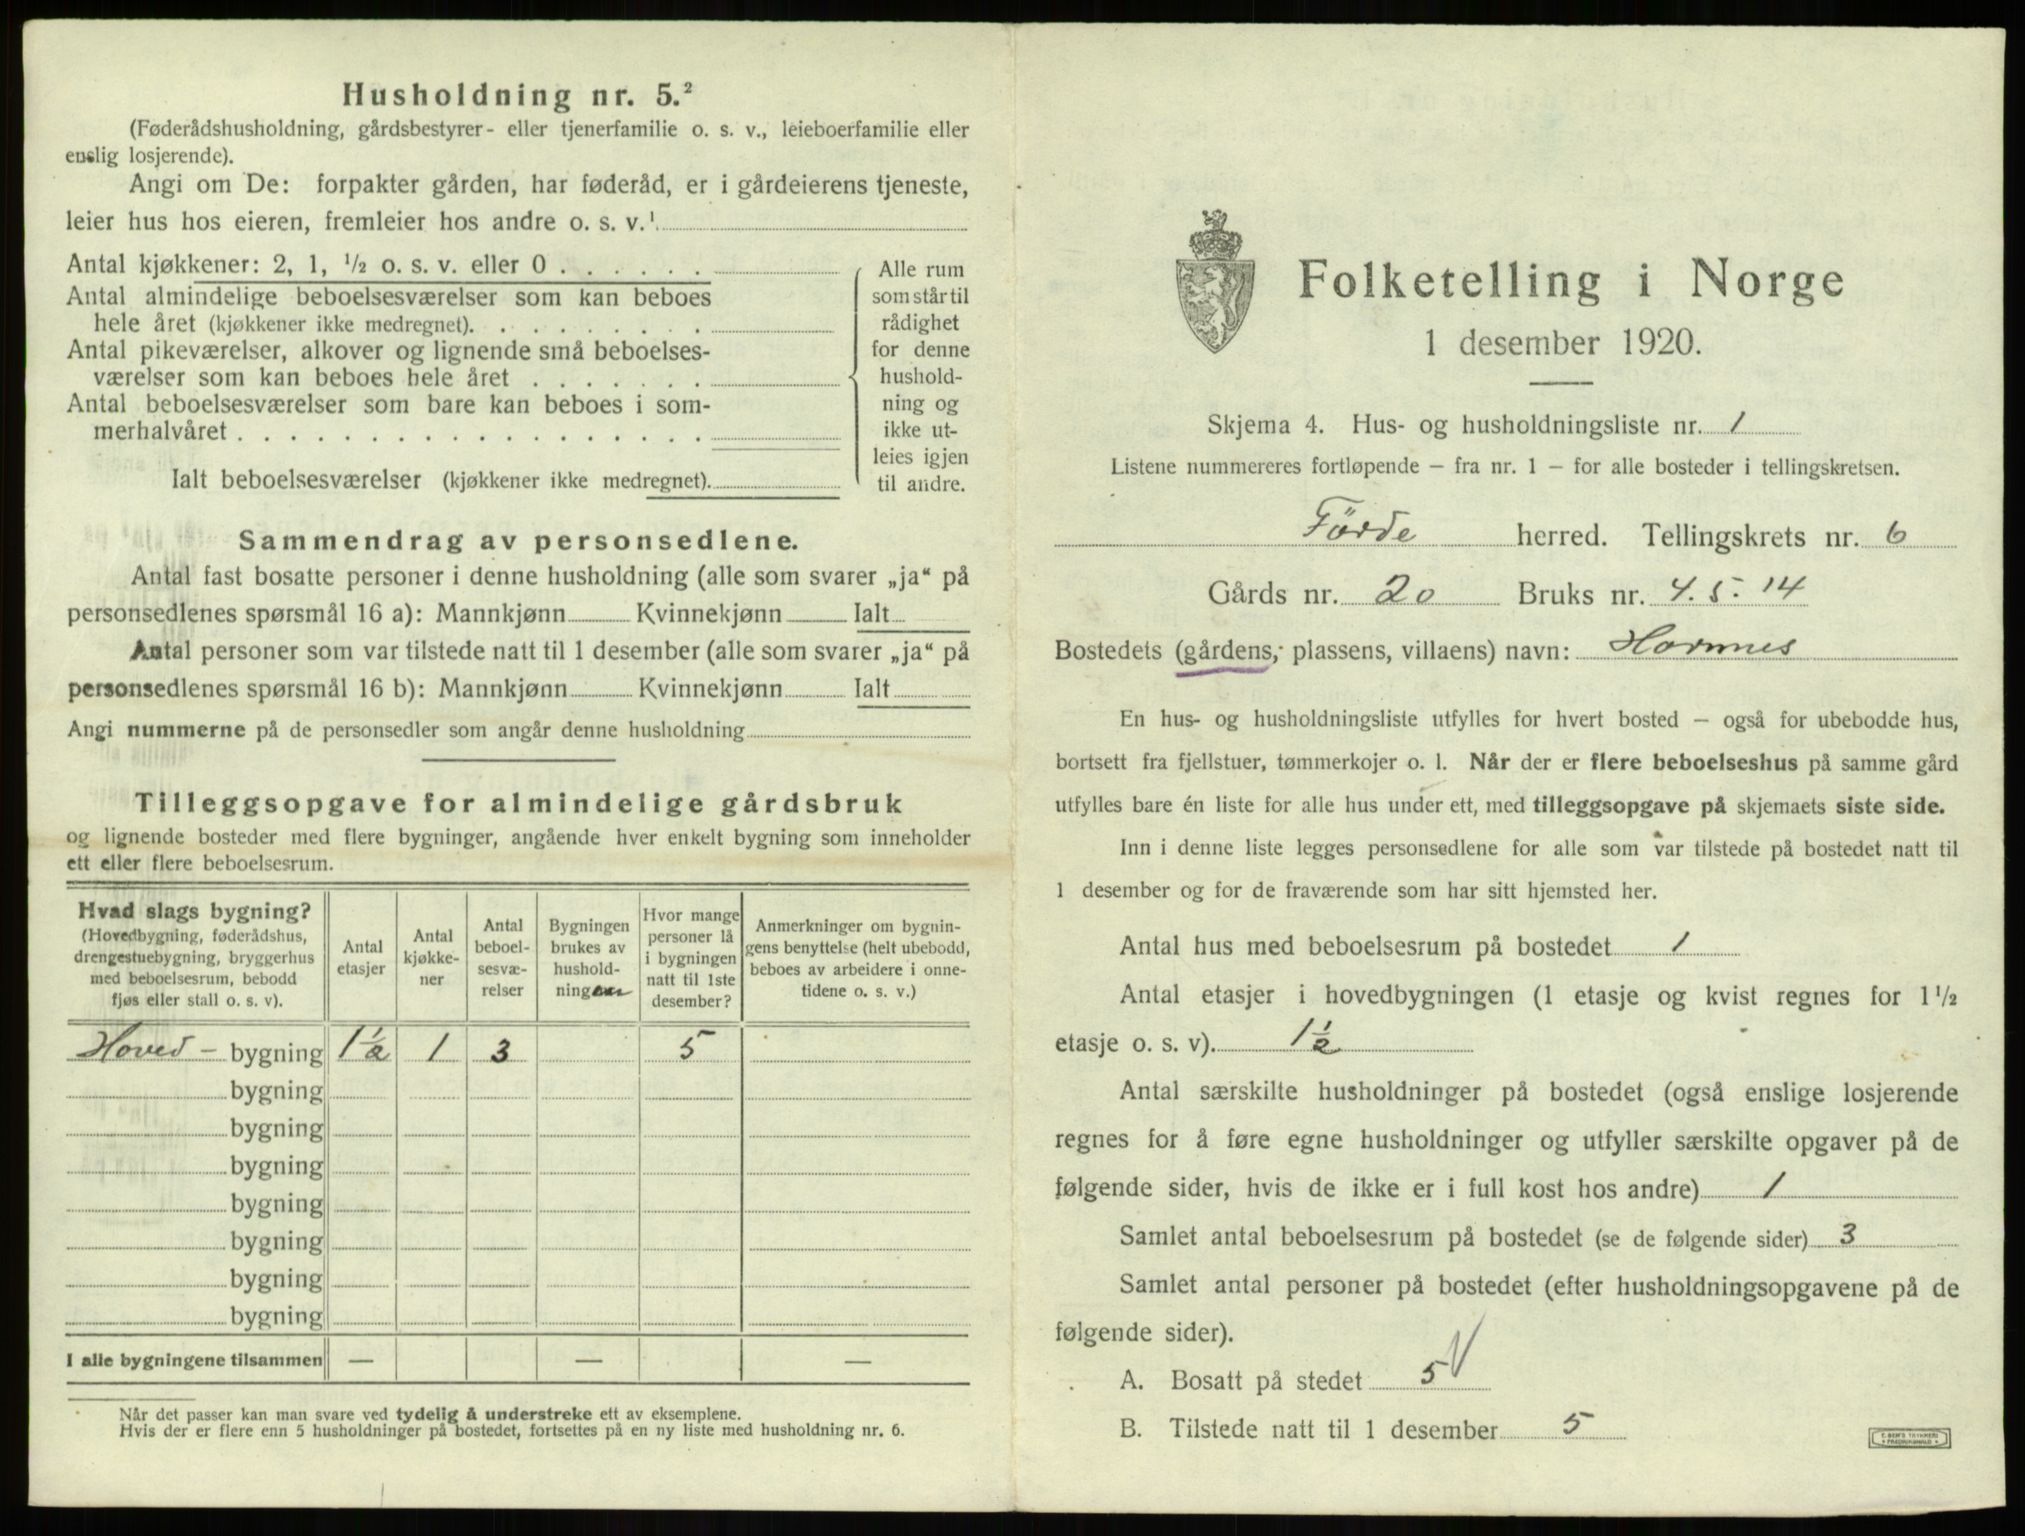 Husholdning nr. 5.²
(Føderådshusholdning, gårdsbestyrer- eller tjenerfamilie o. s. v., leieboerfamilie eller
enslig losjerende).
Angi om De: forpakter gården, har føderåd, er i gårdeierens tjeneste,
leier hus hos eieren, fremleier hos andre o. s. v.¹
Antal kjøkkener: 2, 1, ½ o. s. v. eller 0 . . . . . .
Antal almindelige beboelsesværelser som kan beboes
hele året (kjøkkener ikke medregnet). . . . . . . . .
Antal pikeværelser, alkover og lignende små beboelses-
værelser som kan beboes hele året . . . . . . .
Antal beboelsesværelser som bare kan beboes i som-
merhalvåret . . . . . . . . . . . . . . . . . .
Ialt beboelsesværelser (kjøkkener ikke medregnet).
Alle rum
som står til
rådighet
for denne
hushold-
ning og
ikke ut-
leies igjen
til andre.
Sammendrag av personsedlene.
Antal fast bosatte personer i denne husholdning (alle som svarer „ja“ på
personsedlenes spørsmål 16 a): Mannkjønn Kvinnekjønn Ialt
Antal personer som var tilstede natt til 1 desember (alle som svarer „ja“ på
personsedlenes spørsmål 16 b): Mannkjønn Kvinnekjønn Ialt
Angi nummerne på de personsedler som angår denne husholdning
Tilleggsopgave for almindelige gårdsbruk
og lignende bosteder med flere bygninger, angående hver enkelt bygning som inneholder
ett eller flere beboelsesrum.
Hvad slags bygning?
(Hovedbygning, føderådshus,
drengestuebygning, bryggerhus
med beboelsesrum, bebodd
fjøs eller stall o. s. v).
Antal
etasjer
Antal
kjøkke-
ner
Antal
beboel-
sesvæ-
relser
Bygningen
brukes av
hushold-
ning
Hvor mange
personer lå
i bygningen
natt til 1ste
desember?
Anmerkninger om bygnin-
gens benyttelse (helt ubebodd,
beboes av arbeidere i onne-
tidene o. s. v.)
Hoved- bygning 1½ 1 3 5
bygning
bygning
bygning
bygning
bygning
bygning
bygning
I alle bygningene tilsammen — — —
Når det passer kan man svare ved tydelig å understreke ett av eksemplene.
Hvis der er flere enn 5 husholdninger på bostedet, fortsettes på en ny liste med husholdning nr. 6.
Folketelling i Norge
1 desember 1920.
Skjema 4. Hus- og husholdningsliste nr. 1
Listene nummereres fortløpende – fra nr. 1 – for alle bosteder i tellingskretsen.
Förde herred. Tellingskrets nr. 6
Gårds nr. 20 Bruks nr. 4. 5. 14
Bostedets (gårdens, plassens, villaens) navn: Hornnes
En hus- og husholdningsliste utfylles for hvert bosted – også for ubebodde hus,
bortsett fra fjellstuer, tømmerkojer o. l. Når der er flere beboelseshus på samme gård
utfylles bare én liste for alle hus under ett, med tilleggsopgave på skjemaets siste side.
Inn i denne liste legges personsedlene for alle som var tilstede på bostedet natt til
1 desember og for de fraværende som har sitt hjemsted her.
Antal hus med beboelsesrum på bostedet 1
Antal etasjer i hovedbygningen (1 etasje og kvist regnes for 1½
etasje o. s. v). 1½
Antal særskilte husholdninger på bostedet (også enslige losjerende
regnes for å føre egne husholdninger og utfyller særskilte opgaver på de
følgende sider, hvis de ikke er i full kost hos andre) 1
Samlet antal beboelsesrum på bostedet (se de følgende sider) 3
Samlet antal personer på bostedet (efter husholdningsopgavene på de
følgende sider).
A. Bosatt på stedet 5
B. Tilstede natt til 1 desember 5